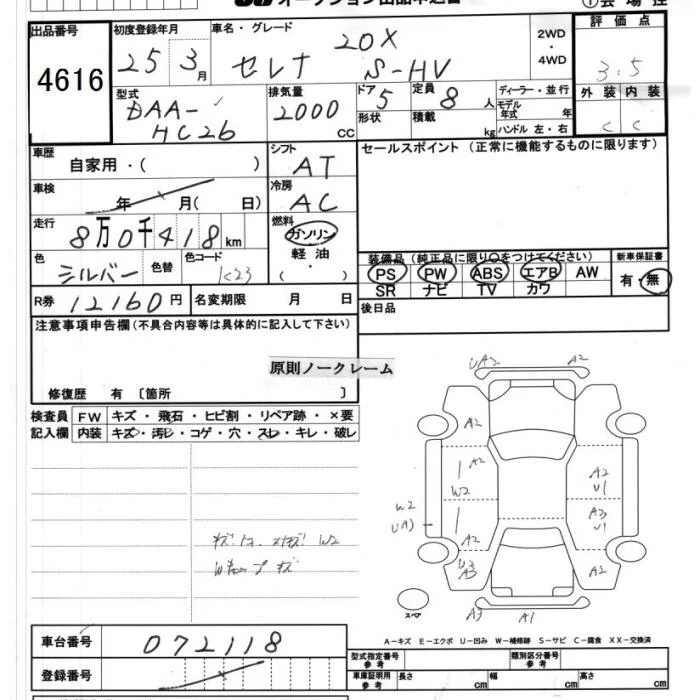 オークション出品申込書
①会場控
出品番号
4616
初度登録年月
25 3月
車名・グレード
20X
セレナ S-HV
2WD・4WD
評価点
3.5
外装 内装
C C
型式
DAA-
HC26
排気量
2000 cc
ドア 5
定員 8人
形状
積載 kg
ディーラー・並行
モデル年式 年
ハンドル 左・右
車歴
自家用・( )
シフト
AT
セールスポイント(正常に機能するものに限ります)
車検
年 月( 日)
冷房
AC
走行
8万0千418km
燃料
ガソリン
軽油
・( )
色
シルバー
色替
色コード
K23
装備品(純正品に限り○をつけてください)
PS PW ABS エアB AW
SR ナビ TV カワ
新車保証書
有・無
R券 12160円
名変期限 月 日
後日品
注意事項申告欄(不具合内容等は具体的に記入して下さい)
原則ノークレーム
修復歴 有〔箇所 〕
検査員記入欄
FW キズ・飛石・ヒビ割・リペア跡・×要
内装 キズ・汚レ・コゲ・穴・スレ・キレ・破レ
UA2 A2
A2
A2
W2
A2
U1
W2
UA3
A3
U1
A2
U3
A3
A2
W2
キズ
スペア
A3 A1
A-キズ E-エクボ U-凹み W-補修跡 S-サビ C-腐食 XX-交換済
車台番号
072118
登録番号
型式指定番号 参考
類別区分番号 参考
車庫証明用 参考
長さ cm
幅 cm
高さ cm